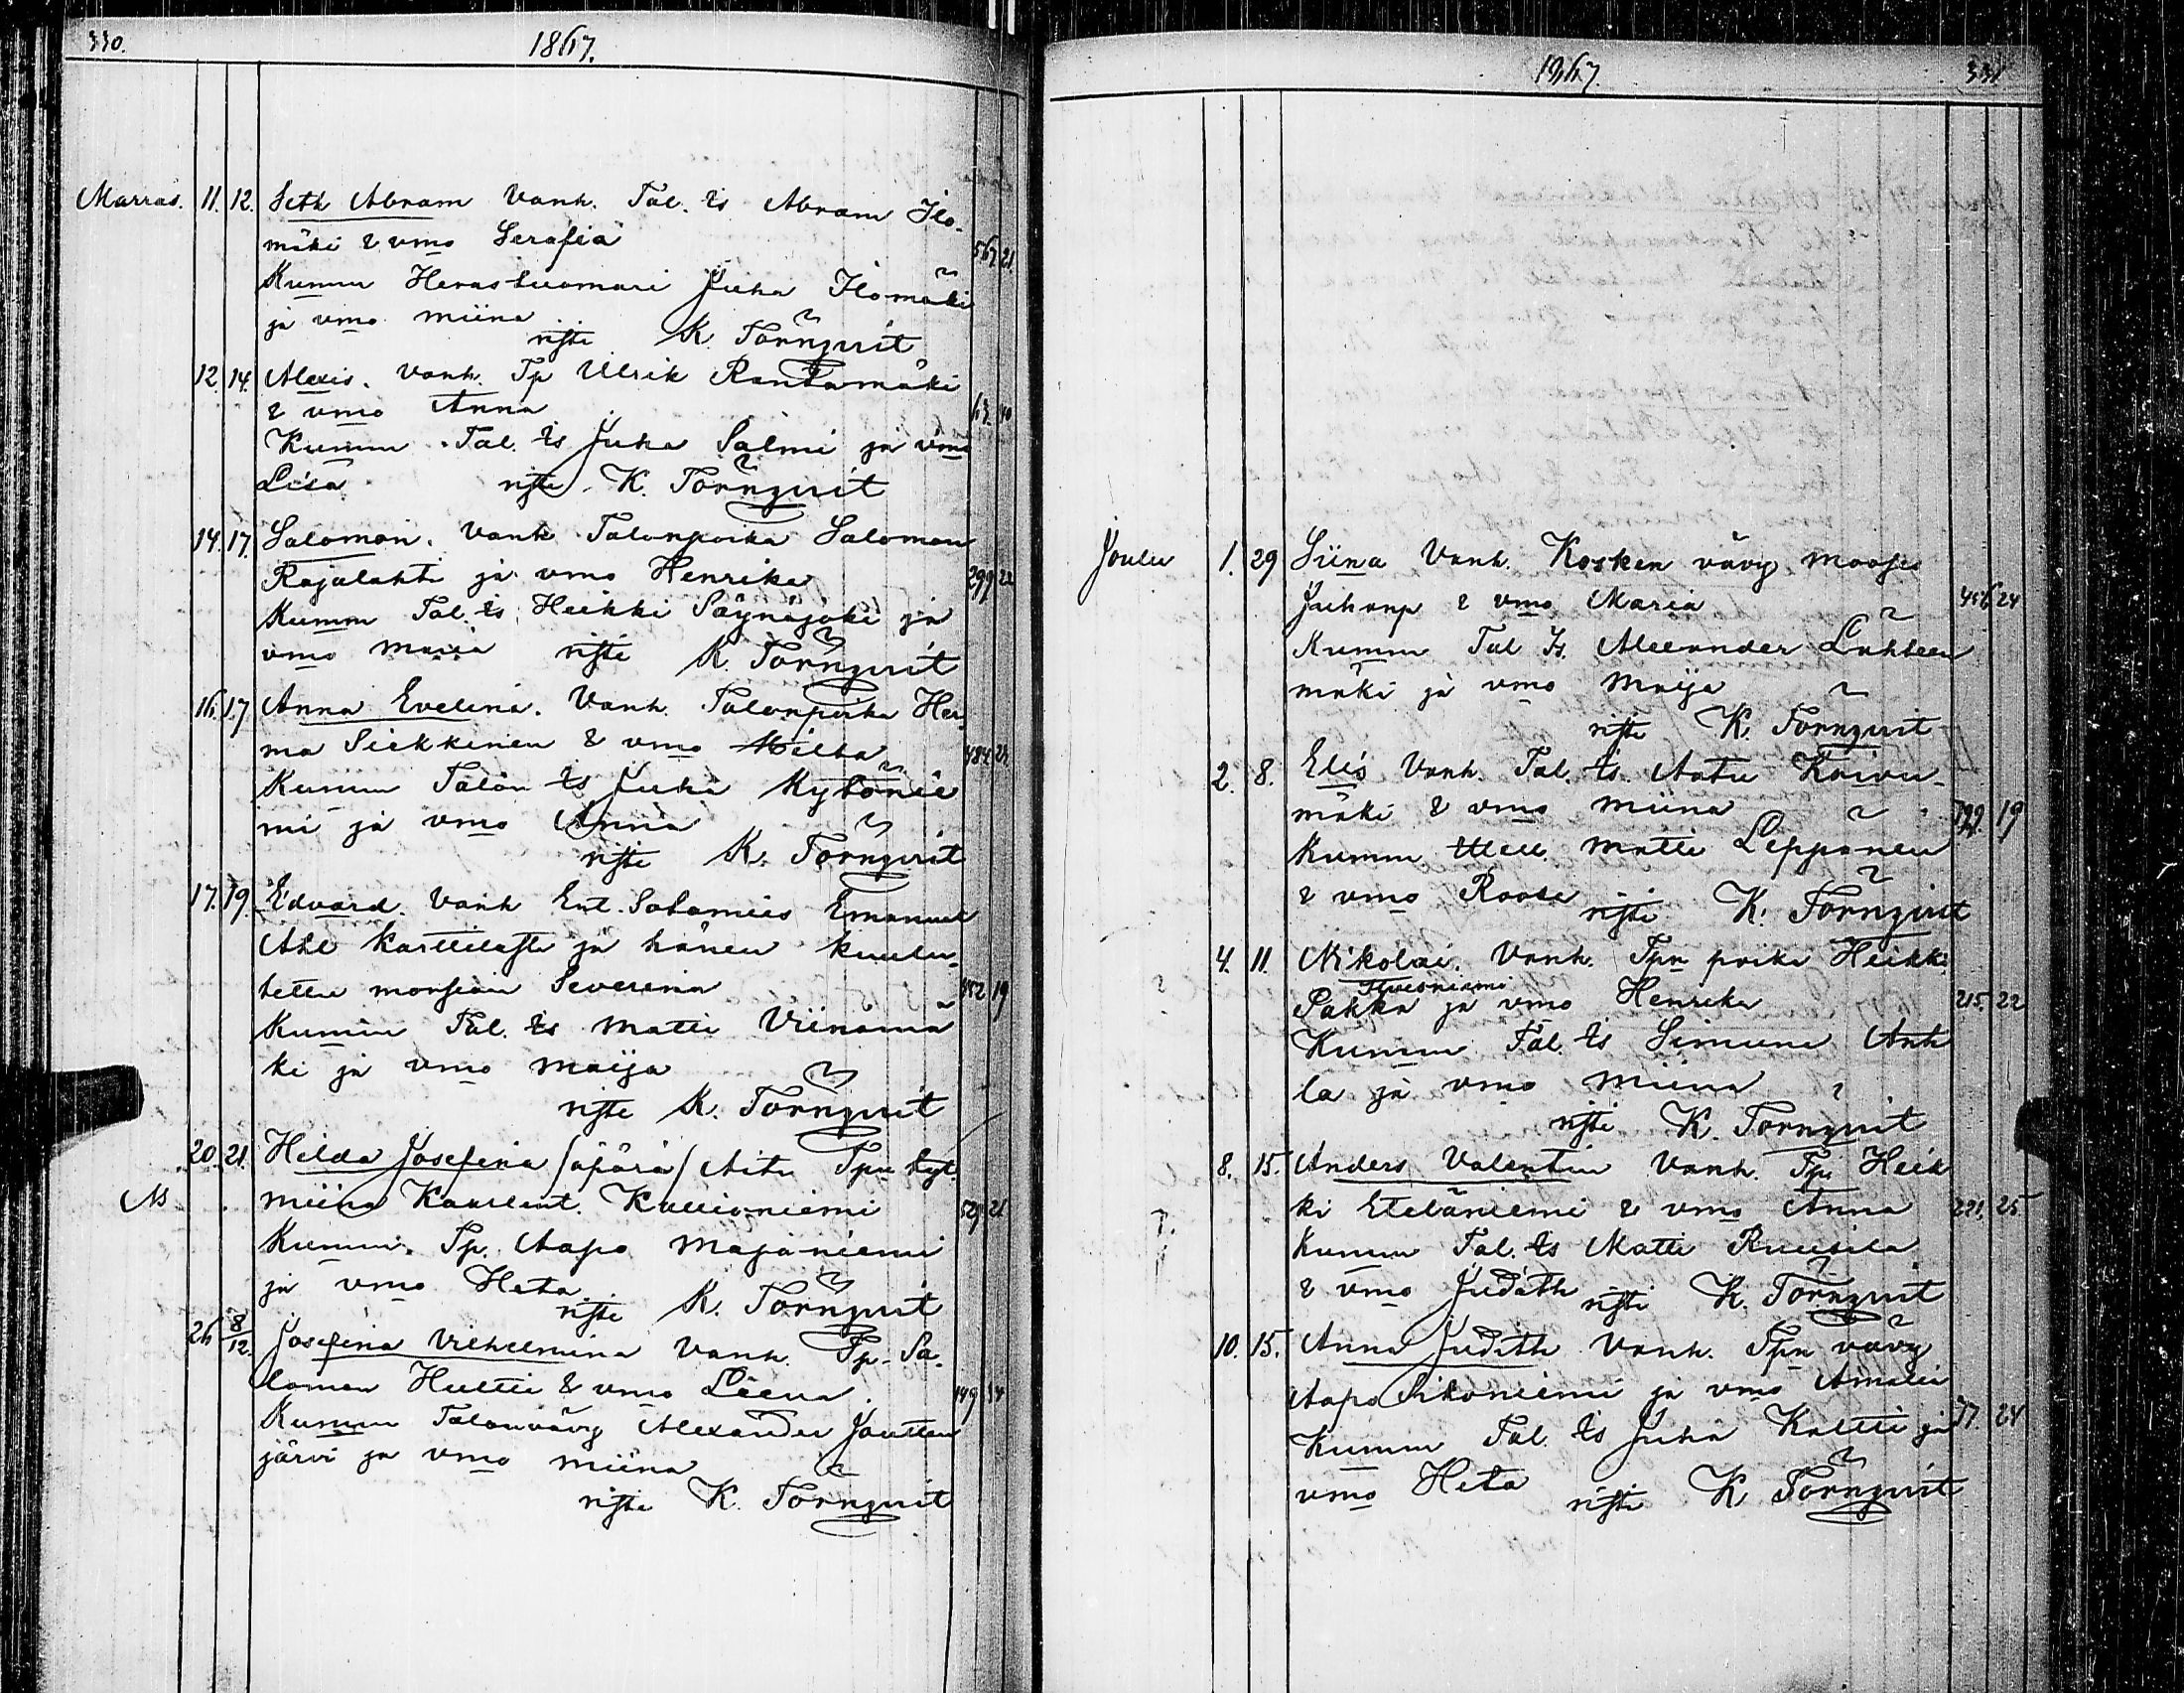 330.
1867.
Marras. 11. 12. Seth Abram Vanh. Tal. Is Abram Ilo-
mäki & vmo Serafia 567 21
Kumm Herastuomari Juha Ilomäki
ja vmo Miina
risti K. Törnqvist
12. 14. Alexis. Vanh. Tp Ulrik Rantamäki
& vmo Anna 63. 40
Kumm Tal. Is Juha Salmi ja vmo
Lisa risti K. Törnqvist
14. 17. Salomon. Vanh Talonpoika Salomon
Rajalahti ja vmo Henrika 299 22
Kumm Tal. Is Heikki Säynäjoki ja
vmo Maria risti K. Törnqvist
16. 17 Anna Evelina. Vanh. Talonpoika Her-
ma Siekkinen & vmo Milka 484 22
Kumm Talon Is Juha Kytönie
mi ja vmo Anna
risti K. Törnqvist
17. 19. Edvard. Vanh Ent. Sotamies Emanuel
Ahl Karttilasta ja hänen kuulu-
tettu morsian Severina 452 19
Kumm Tal. Is Matti Viinamä
ki ja vmo Maija
risti K. Törnqvist
20. 21. Hilda Josefina /äpärä/ Aiti Tpn tyt.
Ns Miina Kaurlent. Kallioniemi 529 21
Kumm. Tp. Aapo Majaniemi
ja vmo Heta
risti K. Törnqvist
26 8/12. Josefina Vilhelmina Vanh. Tp. Sa-
lomon Hultti & vmo Leena 149 34
Kumm Talonvävy Alexander Joutten
järvi ja vmo Miina
risti K. Törnqvist
1867.
331
Joulu 1. 29 Siina Vanh. Kosken vävy Mooses
Juhanp & vmo Maria 456 24
Kumm Tal Is. Alexander Lahteen
mäki ja vmo Maija
risti K. Törnqvist
2. 8. Elis Vanh. Tal. Is. Aatu Koivu-
mäki & vmo Miina 199. 19
Kumm Matti Leppänen
& vmo Roosa risti K. Törnqvist
4. 11. Nikolai. Vanh. Tpn poika Heikki
Pakka ja vmo Henrika 215. 22
Kumm Tal. Is Simuni Anti
la ja vmo Miina
risti K. Törnqvist
8. 15. Anders Valentin Vanh. Tp. Heik
ki Eteläniemi & vmo Anna 221. 25
Kumm Tal. Is Matti Ruusila
& vmo Judith risti K. Törnqvist
10. 15. Anna Judith Vanh. Tpn vävy
Aapo Sikoniemi ja vmo Amalia
Kumm Tal. Is Juha Kaltti ja 77. 24
vmo Heta risti K Törnqvist